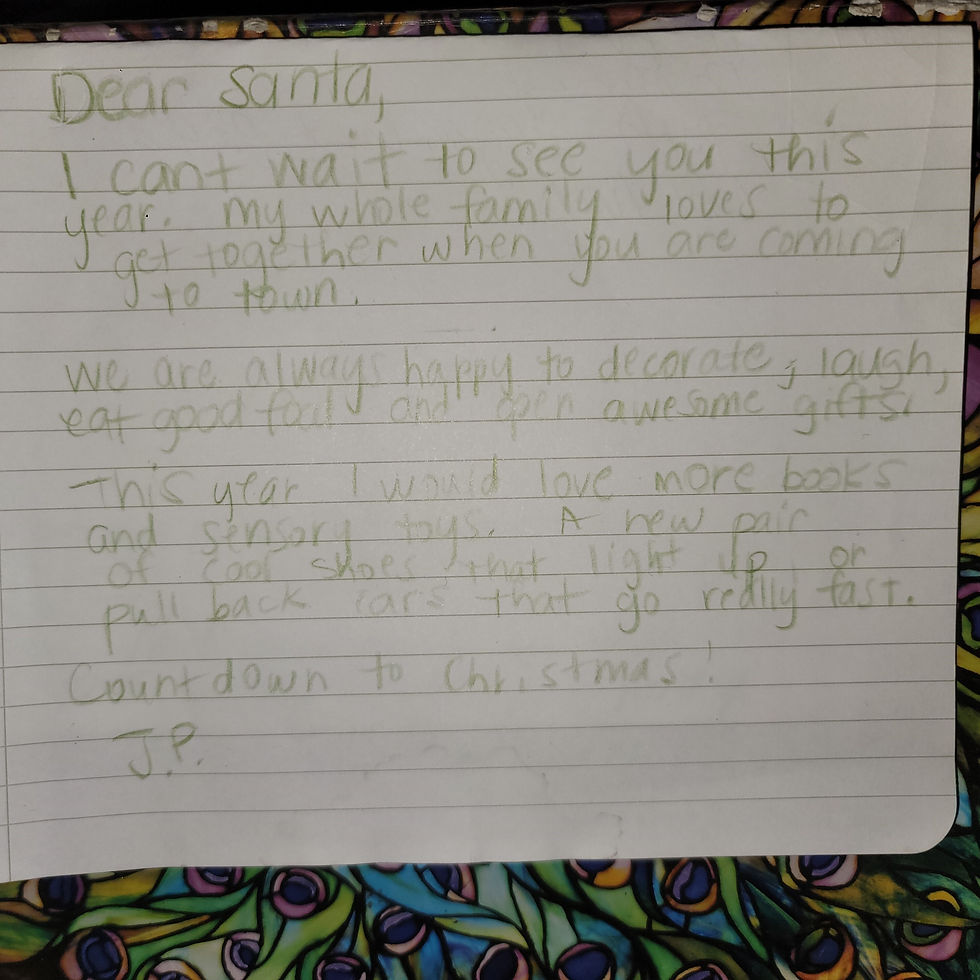 Dear Santa,
I cant wait to see you this
year. My whole family loves to
get together when you are coming
to town.
We are always happy to decorate, laugh,
eat good food and open awesome gifts.
This year I would love more books
and sensory toys. A new pair
of cool shoes that light up or
pull back cars that go really fast.
Countdown to Christmas!
J.P.